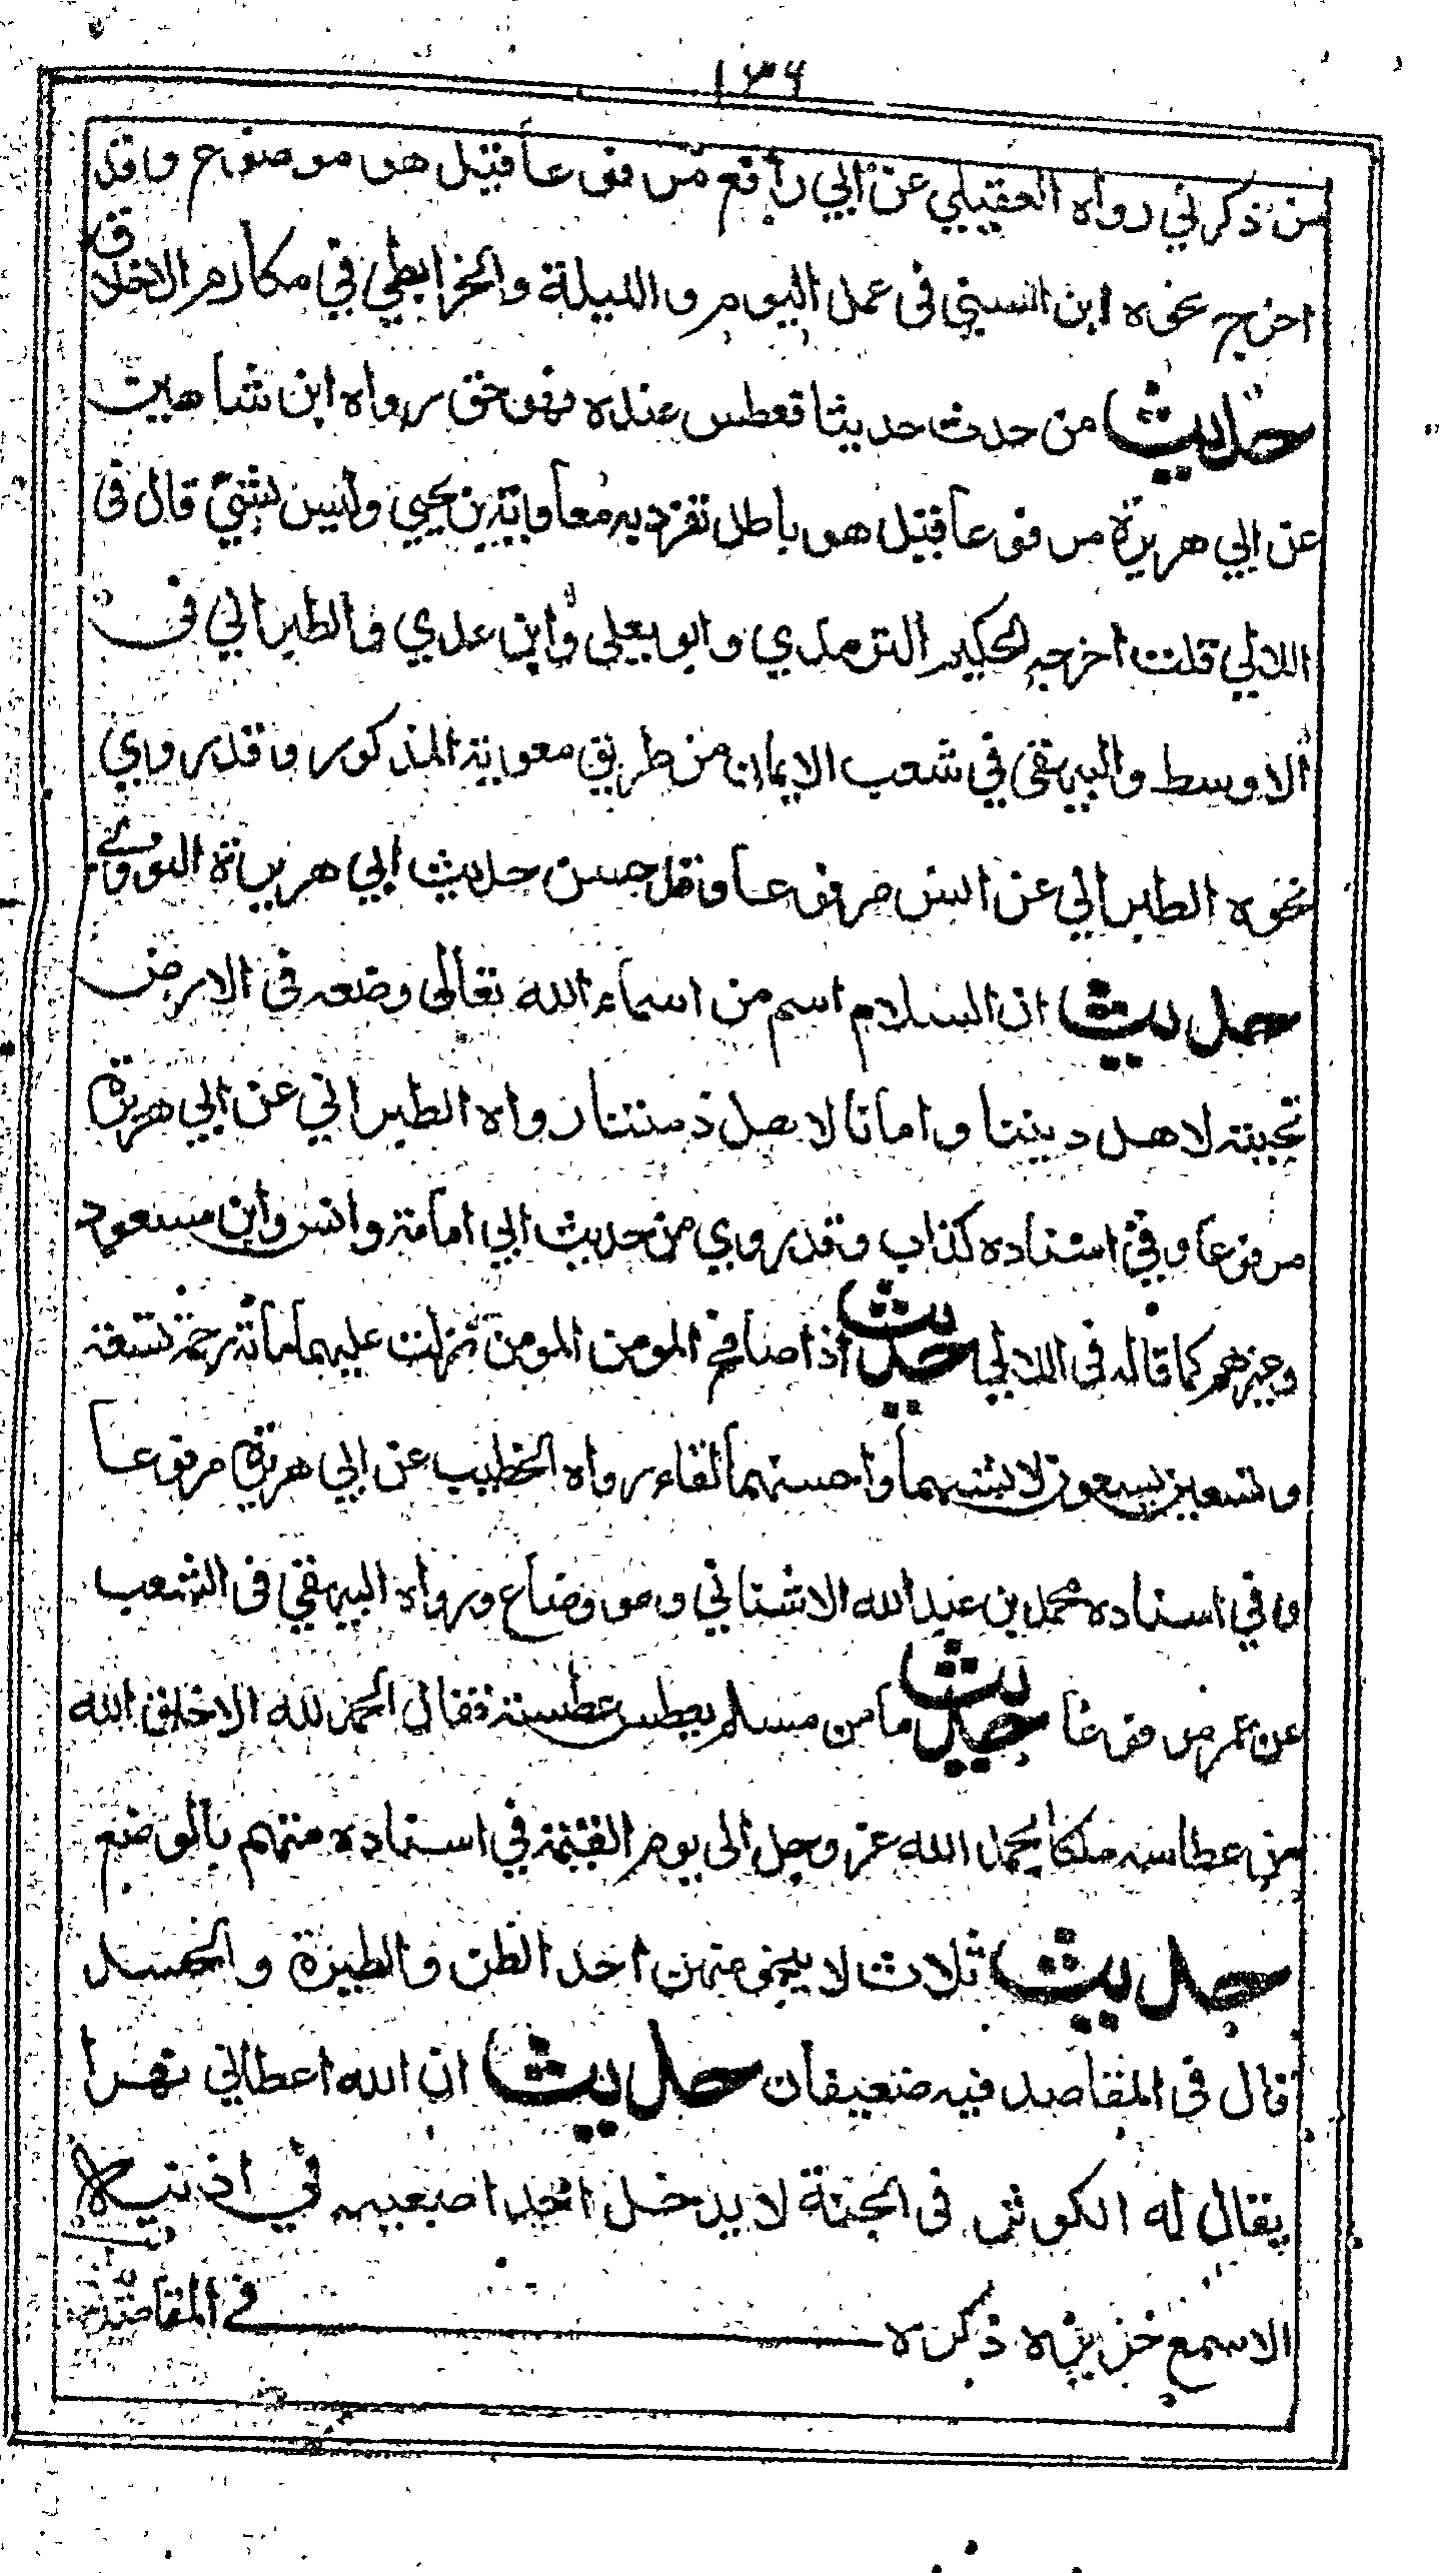 ١٣٦
من ذكرني رواه العقيلي عن ابي رافع مرفوعا قيل هو موضوع وقد
اخرج نحوه ابن السني في عمل اليوم والليلة والخرايطي في مكارم الاخلاق
حديث من حدث حديثا فعطس عنده فهو حق رواه ابن شاهين
عن ابي هريرة مرفوعا قيل هو باطل تفرد به معاوية بن يحيى وليس بشيء قال في
اللالي قلت اخرجه الحكيم الترمذي وابو يعلى وابن عدي والطبراني في
الاوسط والبيهقي في شعب الايمان من طريق معوية المذكور وقد روي
نحوه الطبراني عن انس مرفوعا وقد حسن حديث ابي هريرة النووي
حديث ان السلام اسم من اسماء الله تعالى وضعه في الارض
تحية لاهل ديننا وامانا لاهل ذمتنا رواه الطبراني عن ابي هريرة
مرفوعا وفي اسناده كذاب وقد روي من حديث ابي امامة وانس وابن مسعود
وغيرهم كما قاله في اللالي حديث اذا صافح المومن المومن نزلت عليهما مائة رحمة تسعة
وتسعين يسعون لابشهما واحسنهما لقاء رواه الخطيب عن ابي هريرة مرفوعا
وفي اسناده محمد بن عبد الله الاشناني وهو وضاع ورواه البيهقي في الشعب
عن عمر مرفوعا حديث ما من مسلم يعطس عطسة فقال الحمد لله الا خلق الله
من عطاسه ملكا يحمد الله عز وجل الى يوم القيمة في اسناده متهم بالوضع
حديث ثلاث لا ينجو منهن احد الظن والطيرة والحسد
قال في المقاصد فيه ضعيفان حديث ان الله اعطاني نهرا
يقال له الكوثر في الجنة لا يدخل احد اصبعيه في اذنيه
الا سمع خريره ذكره في المقاصد